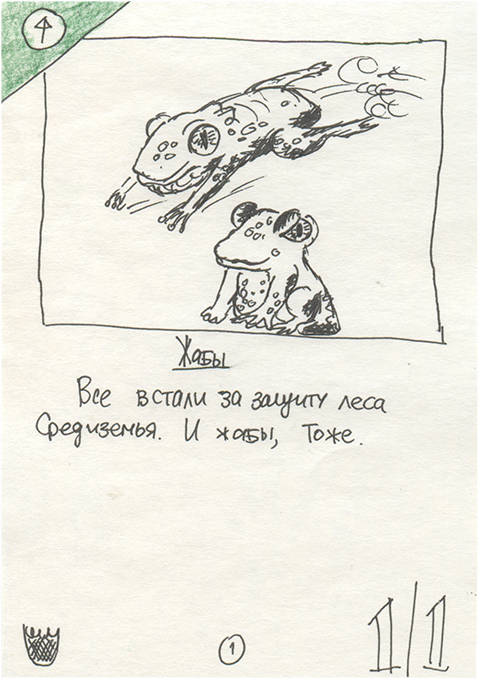 Жабы
Все встали за защиту леса
Средиземья. И жабы, тоже.
1
1/1